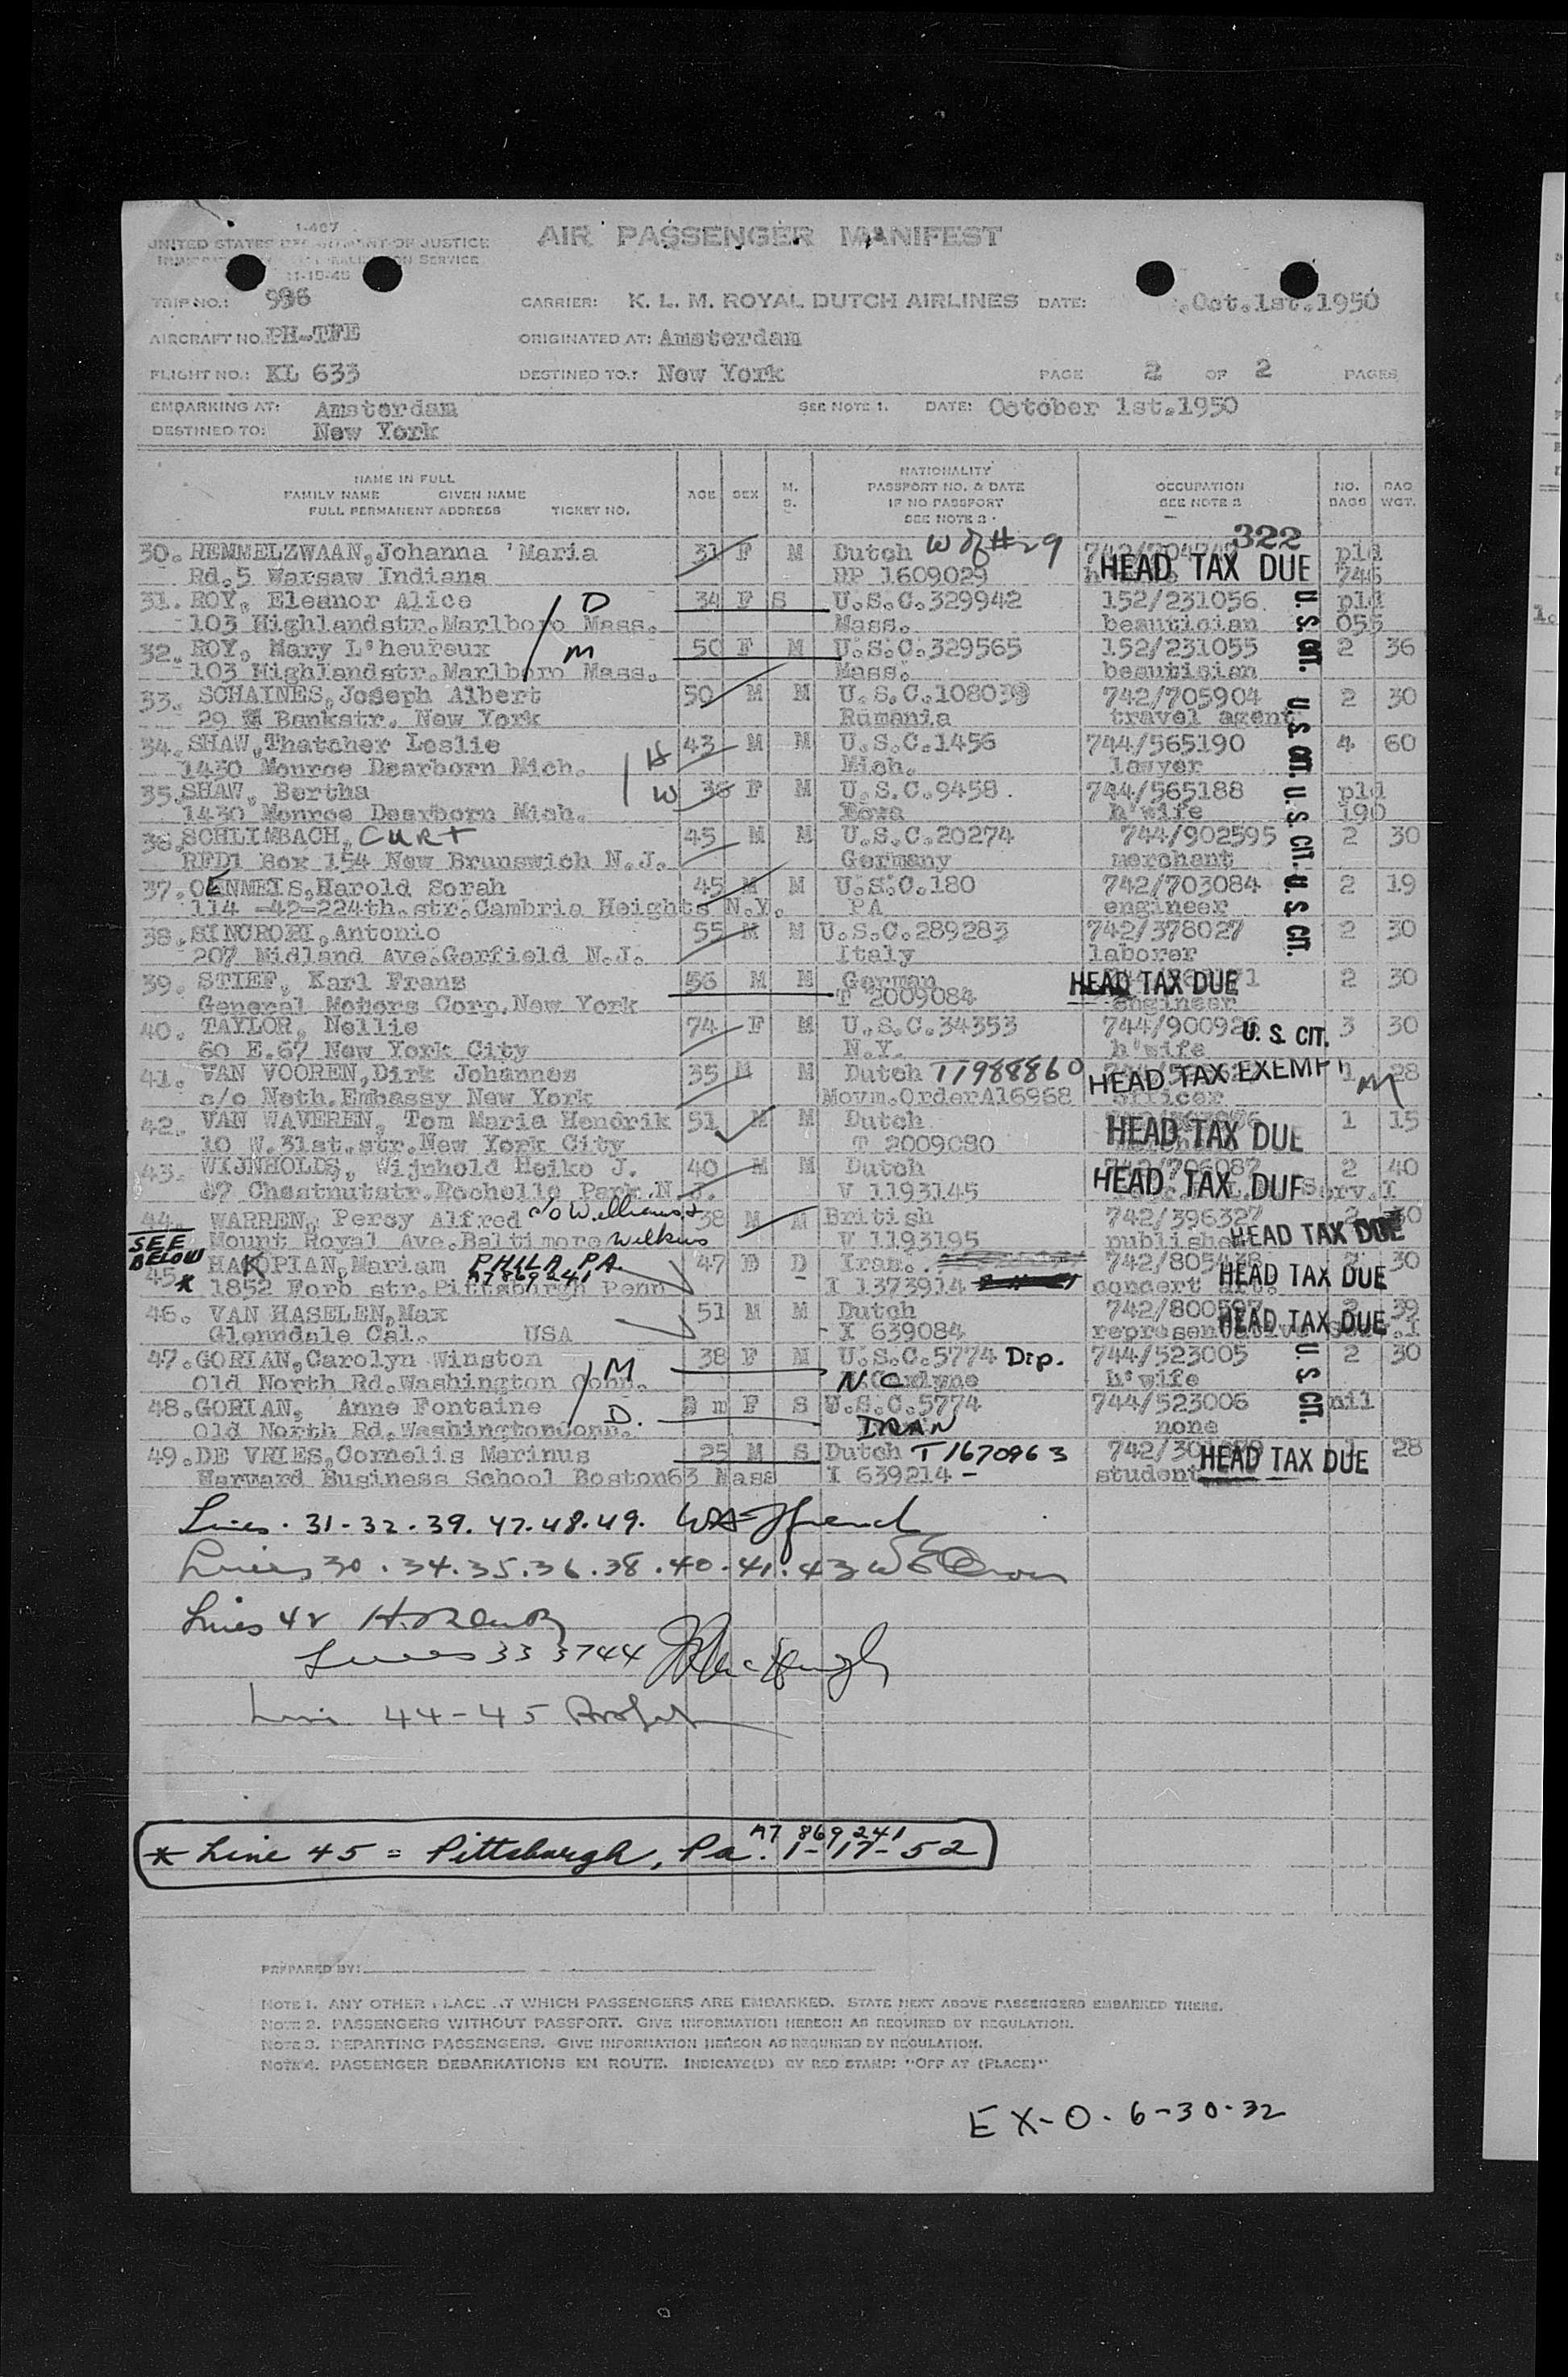 I-467
UNITED STATES DEPARTMENT OF JUSTICE
IMMIGRATION NATURALIZATION SERVICE
11-15-45
AIR PASSENGER MANIFEST
TRIP NO.: 996 CARRIER: K. L. M. ROYAL DUTCH AIRLINES DATE: .Oct.1st.1950
AIRCRAFT NO. PH-TFE ORIGINATED AT: Amsterdam
FLIGHT NO.: KL 633 DESTINED TO.: New York PAGE 2 OF 2 PAGES
EMBARKING AT: Amsterdam SEE NOTE 1. DATE: October 1st.1950
DESTINED TO: New York
NAME IN FULL
FAMILY NAME GIVEN NAME
FULL PERMANENT ADDRESS TICKET NO.
AGE SEX M. S.
NATIONALITY
PASSPORT NO. & DATE
IF NO PASSPORT
SEE NOTE 2
OCCUPATION
SEE NOTE 3
NO. BAGS
BAG. WGT.
322
30. REMMELZWAAN, Johanna 'Maria 31 F M Dutch W of #29 pld
Rd.5 Warsaw Indiana NP 1609029 HEAD TAX DUE 746
31. ROY, Eleanor Alice D 34 F S U.S.C.329942 152/231056 U. S. CIT. pld
103 Highlandstr.Marlboro Mass. Mass. beautician 055
32. ROY, Mary L'heureux M 50 F M U.S.C.329565 152/231055 2 36
103 Highlandstr.Marlboro Mass. Mass. beautician
33. SCHAINES, Joseph Albert 50 M M U.S.C.108039 742/705904 U. S. CIT. 2 30
29 Bankstr. New York Rumania travel agent
34. SHAW, Thatcher Leslie H 43 M M U.S.C.1456 744/565190 4 60
1430 Monroe Dearborn Mich. Mich. lawyer
35. SHAW, Bertha W 36 F M U.S.C.9458. 744/565188 U. S. CIT. pld
1430 Monroe Dearborn Mich. Iowa h'wife 190
36. SCHLIMBACH, CURT 45 M M U.S.C.20274 744/902595 2 30
RFD1 Box 154 New Brunswich N.J. Germany merchant
37. OENMEIS, Harold Sorah 45 M M U.S.C.180 742/703084 U. S. CIT. 2 19
114 -42-224th.str.Cambria Heights N.Y. PA engineer
38. SINCROPI, Antonio 55 M M U.S.C.289283 742/378027 2 30
207 Midland Ave.Garfield N.J. Italy laborer
39. STIEF, Karl Franz 56 M M German HEAD TAX DUE 2 30
General Motors Corp.New York T 2009084 engineer
40. TAYLOR, Nellie 74 F M U.S.C.34353 744/900926 U. S. CIT. 3 30
60 E.67 New York City N.Y. h'wife
41. VAN VOOREN, Dirk Johannes 35 M M Dutch T1988860 HEAD TAX EXEMPT 1 28
c/o Neth.Embassy New York Movm.OrderA16968 officer M
42. VAN WAVEREN, Tom Maria Hendrik 51 M M Dutch 1 15
10 W.31st.str.New York City T 2009080 HEAD TAX DUE
43. WIJNHOLDS, Wijnhold Heiko J. 40 M M Dutch 742/706087 2 40
67 Chestnutstr.Rochelle Park.N.J. V 1193145 HEAD TAX DUE Serv.I
44. WARREN, Percy Alfred c/o Williams & 38 M M British 742/396327 2 30
Mount Royal Ave.Baltimore Wilkins V 1193195 publisher HEAD TAX DUE
SEE BELOW
45* HAKOPIAN, Mariam PHILA PA. 47 D Iran. 742/805438 2 30
1852 Forb str.Pittsburgh Penn A7 869 241 I 1373914 concert art. HEAD TAX DUE
46. VAN HASELEN, Max 51 M M Dutch 742/800597 2 39
Glenndale Cal. USA I 639084 representative HEAD TAX DUE
47. GORIAN, Carolyn Winston M 38 F M U.S.C.5774 Dip. 744/523005 U. S. CIT. 2 30
Old North Rd.Washington Conn. NC h'wife
48. GORIAN, Anne Fontaine D. m F S U.S.C.5774 744/523006 nil
Old North Rd.WashingtonConn. IRAN none
49. DE VRIES, Cornelis Marinus 25 M S Dutch T1670963 28
Harvard Business School Boston63 Mass I 639214 - student HEAD TAX DUE
Lines. 31-32.39.47.48.49.
Lines 30.34.35.36.38.40.41.43
Lines 42
Lines 33 37 44
Line 44-45
A7 869 241
* Line 45 = Pittsburgh, Pa. 1-17-52
PREPARED BY:
NOTE 1. ANY OTHER PLACE AT WHICH PASSENGERS ARE EMBARKED. STATE NEXT ABOVE PASSENGERS EMBARKED THERE.
NOTE 2. PASSENGERS WITHOUT PASSPORT. GIVE INFORMATION HEREON AS REQUIRED BY REGULATION.
NOTE 3. DEPARTING PASSENGERS. GIVE INFORMATION HEREON AS REQUIRED BY REGULATION.
NOTE 4. PASSENGER DEBARKATIONS EN ROUTE. INDICATE(D) BY RED STAMP: "OFF AT (PLACE)"
EX-O-6-30-32